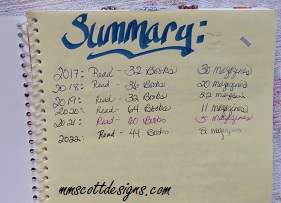 Summary:
2017: Read - 32 Books 30 magazines
2018: Read - 36 Books 20 magazines
2019: Read - 32 Books 22 magazines
2020: Read - 64 Books 11 magazines
2021: Read - 60 Books 5 magazines
2022: Read - 44 Books 2 magazines
mmscottdesigns.com